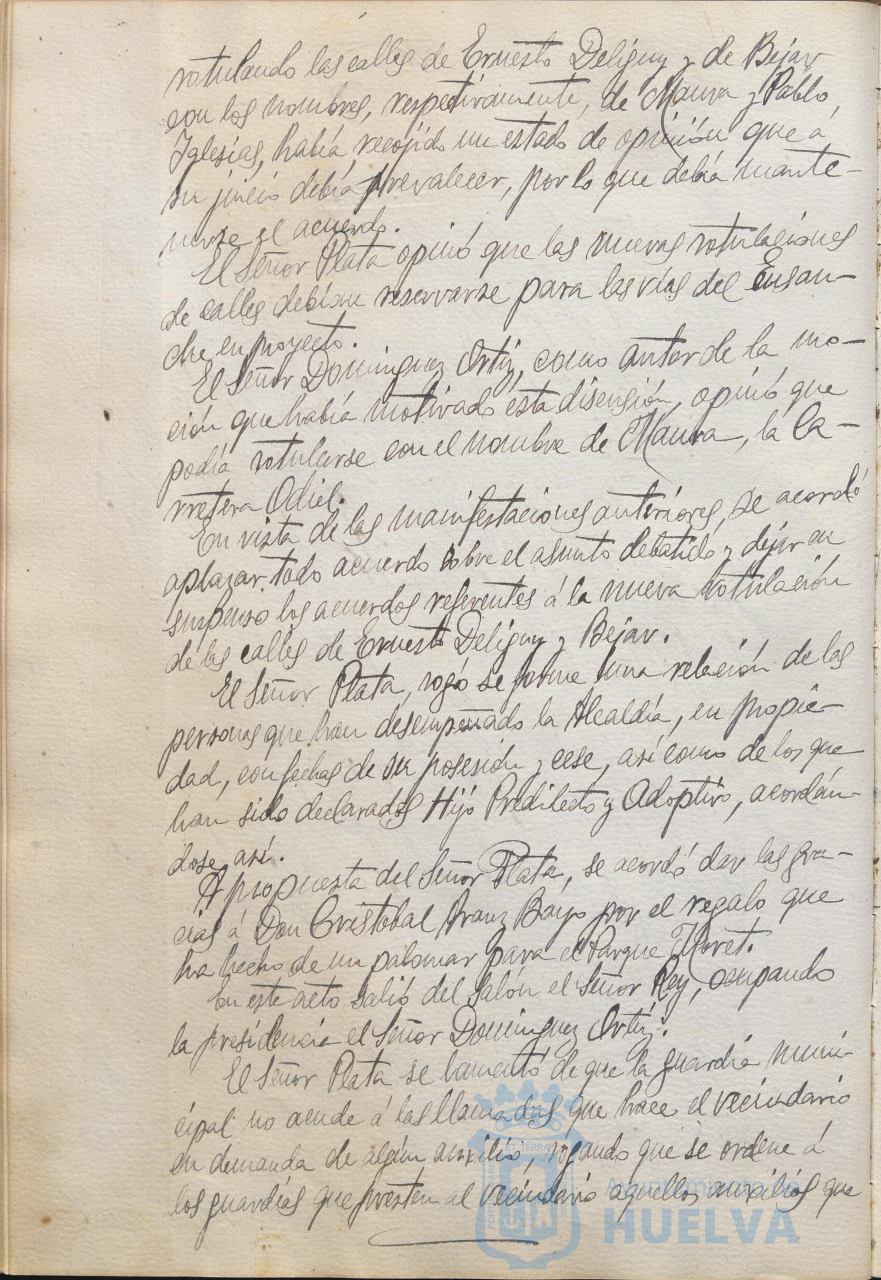 rotulando las calles de Ernesto Deligny y de Béjar
con los nombres, respectivamente, de Maura y Pablo
Iglesias, había recojido un estado de opinión que á
su juicio debía prevalecer, por lo que debía mante-
nerse el acuerdo.
El Señor Plata opinó que las nuevas rotulaciones
de calles debían reservarse para las vías del Ensan-
che en proyecto.
El Señor Dominguez Ortiz, como autor de la mo-
ción que había motivado esta disensión, opinó que
podía rotularse con el nombre de Maura, la Ca-
rretera Odiel.
En vista de las manifestaciones anteriores, se acordó
aplazar todo acuerdo sobre el asunto debatido y dejar en
suspenso los acuerdos referentes á la nueva rotulación
de las calles de Ernesto Deligny y Bejar.
El Señor Plata, rogó se forme una relación de las
personas que han desempeñado la Alcaldía, en propie-
dad, con fechas de su posesión y cese, así como de los que
han sido declarados Hijo Predilecto y Adoptivo, acordán-
dose así.
A propuesta del Señor Plata, se acordó dar las gra-
cias á Don Cristobal Bayo por el regalo que
ha hecho de un palomar para el Parque Moret.
En este acto salió del Salón el Señor Rey, ocupando
la presidencia el Señor Dominguez Ortiz.
El Señor Plata se lamentó de que la guardia muni-
cipal no acude á las llamadas que hace el vecindario
en demanda de algún auxilio, rogando que se ordene á
los guardias que presten al vecindario aquellos auxilios que
Ayuntamiento de
HUELVA